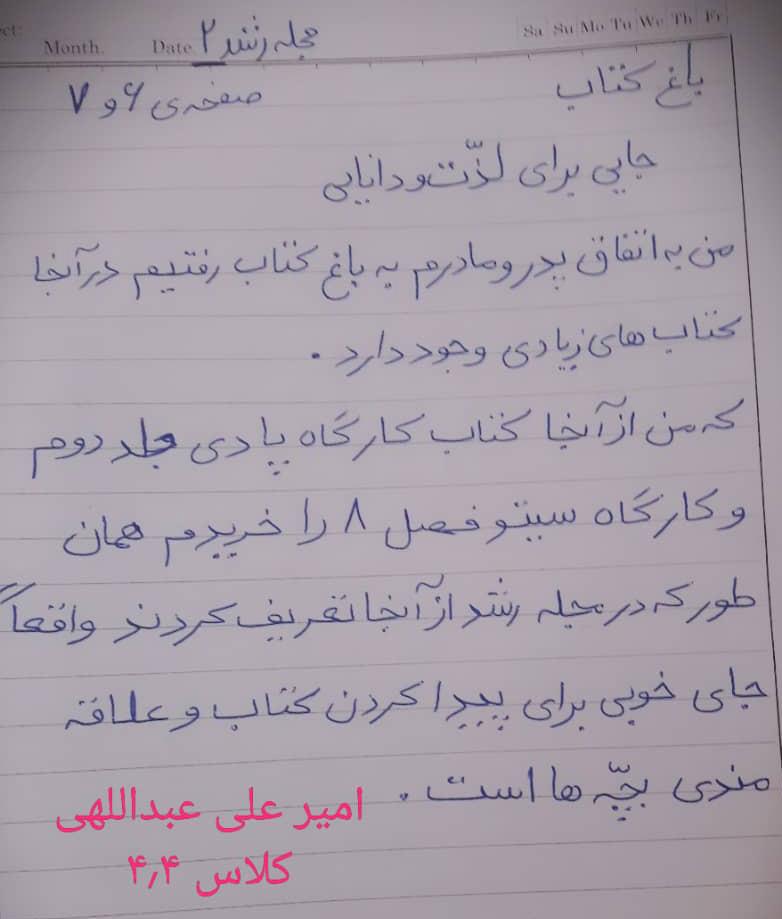 ect:
Month.
Date.
مجله رشد ۲
Sa Su Mo Tu We Th Fr
باغ کتاب
صفحه‌ی ۶ و ۷
جایی برای لذّت و دانایی
من به اتفاق پدر و مادرم به باغ کتاب رفتیم در آنجا
کتاب های زیادی وجود دارد .
که من از آنجا کتاب کارگاه پادی جلد دوم
و کارگاه سیتو فصل ۸ را خریدم همان
طور که در مجله رشد از آنجا تعریف کردند واقعاً
جای خوبی برای پیدا کردن کتاب و علاقه
مندی بچّه ها است .
امیر علی عبداللهی
کلاس ۴٫۴